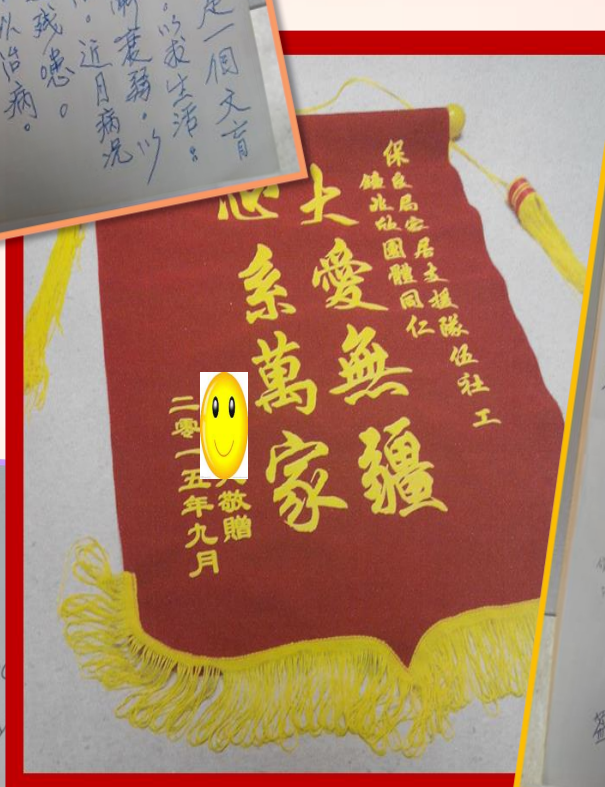 是一個文盲
以求生活
衰弱。以
近月病況
殘患。
治病。
保良局家居支援隊伍社工
團體同仁
大愛無疆
心系萬家
敬贈
二零一五年九月